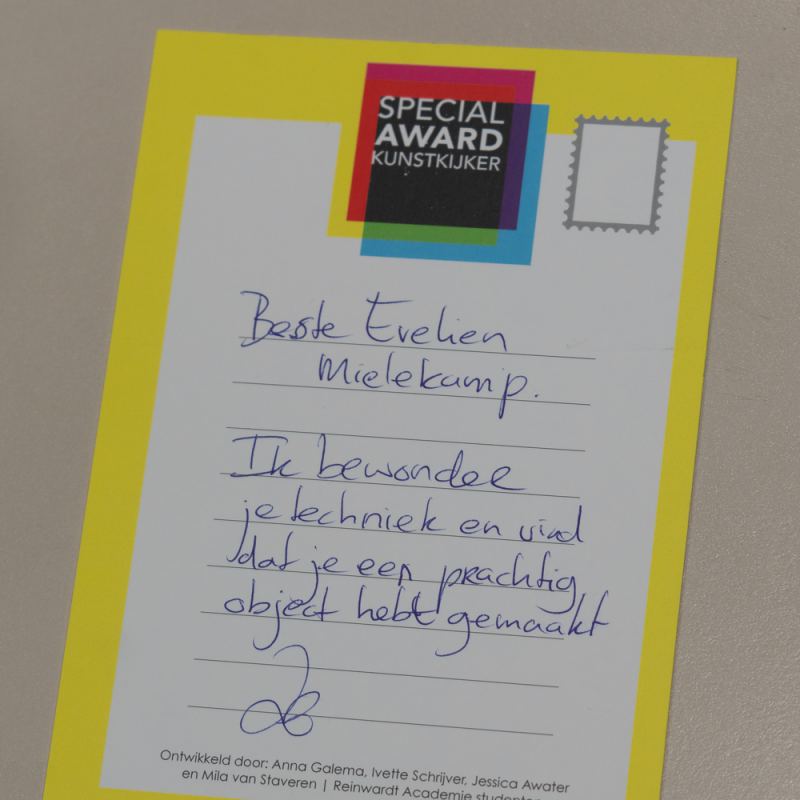 SPECIAL
AWARD
KUNSTKIJKER
Beste Evelien
Mielekamp.
Ik bewonder
je techniek en vind
dat je een prachtig
object hebt gemaakt
Ontwikkeld door: Anna Galema, Ivette Schrijver, Jessica Awater
en Mila van Staveren | Reinwardt Academie studenten